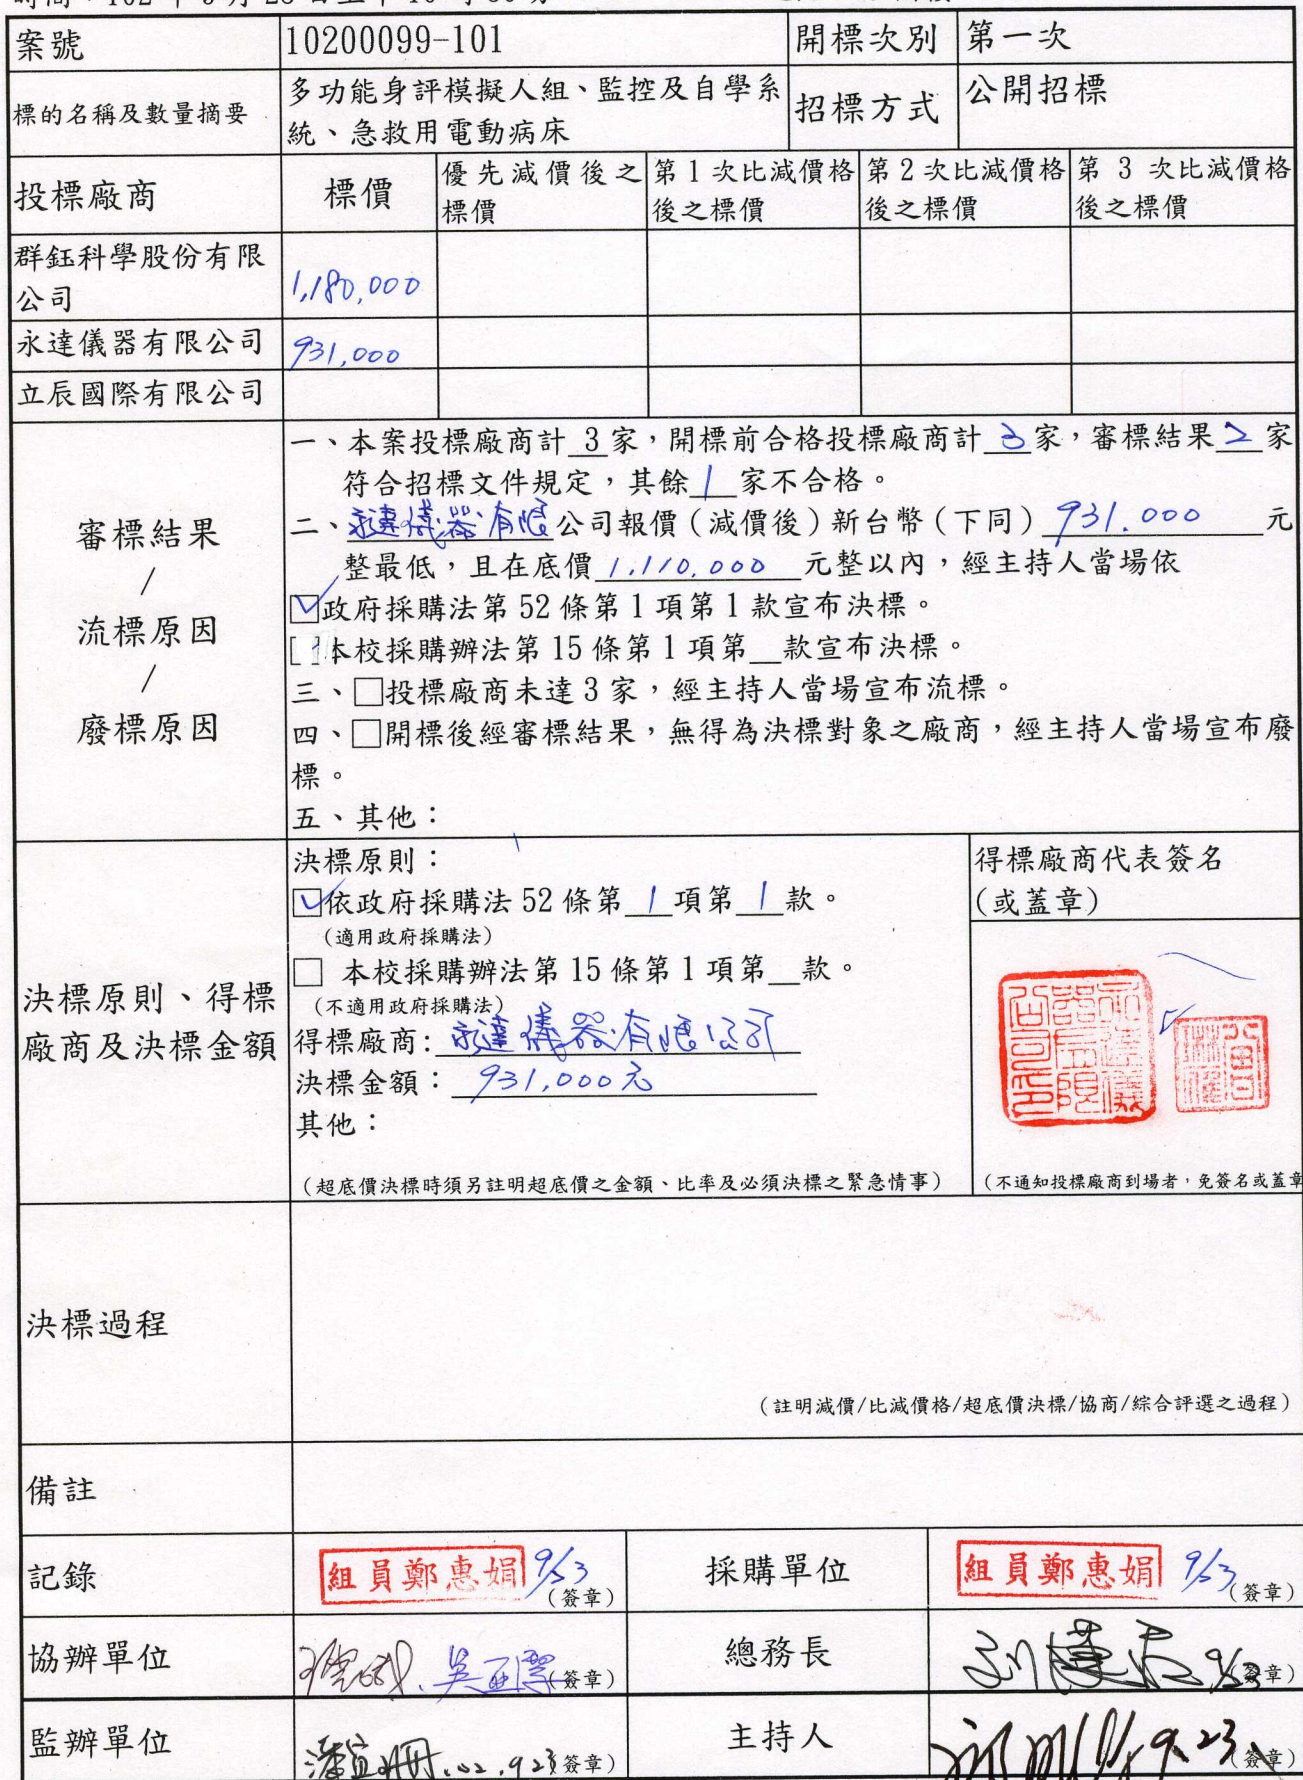 案號 10200099-101 開標次別 第一次
標的名稱及數量摘要 多功能身評模擬人組、監控及自學系
統、急救用電動病床 招標方式 公開招標
投標廠商 標價 優先減價後之
標價 第1次比減價格
後之標價 第2次比減價格
後之標價 第 3 次比減價格
後之標價
群鈺科學股份有限
公司 1,180,000
永達儀器有限公司 931,000
立辰國際有限公司
審標結果
/
流標原因
/
廢標原因
一、本案投標廠商計 3 家,開標前合格投標廠商計 3 家,審標結果 2 家
符合招標文件規定,其餘 1 家不合格。
二、永達儀器有限公司報價(減價後)新台幣(下同) 931.000 元
整最低,且在底價 1,110,000 元整以內,經主持人當場依
☑政府採購法第 52 條第 1 項第 1 款宣布決標。
□本校採購辦法第 15 條第 1 項第__款宣布決標。
三、□投標廠商未達 3 家,經主持人當場宣布流標。
四、□開標後經審標結果,無得為決標對象之廠商,經主持人當場宣布廢
標。
五、其他:
決標原則、得標
廠商及決標金額
決標原則:
☑依政府採購法 52 條第 1 項第 1 款。
(適用政府採購法)
□ 本校採購辦法第 15 條第 1 項第__款。
(不適用政府採購法)
得標廠商: 永達儀器有限公司
決標金額: 931,000元
其他:
(超底價決標時須另註明超底價之金額、比率及必須決標之緊急情事)
得標廠商代表簽名
(或蓋章)
永達儀
器有限
公司印
(不通知投標廠商到場者,免簽名或蓋章
決標過程
(註明減價/比減價格/超底價決標/協商/綜合評選之過程)
備註
記錄 組員鄭惠娟 9/23 (簽章) 採購單位 組員鄭惠娟 9/23 (簽章)
協辦單位 (簽章) 總務長 9/23 簽章)
監辦單位 102.9.23 簽章) 主持人 9.23 (簽章)